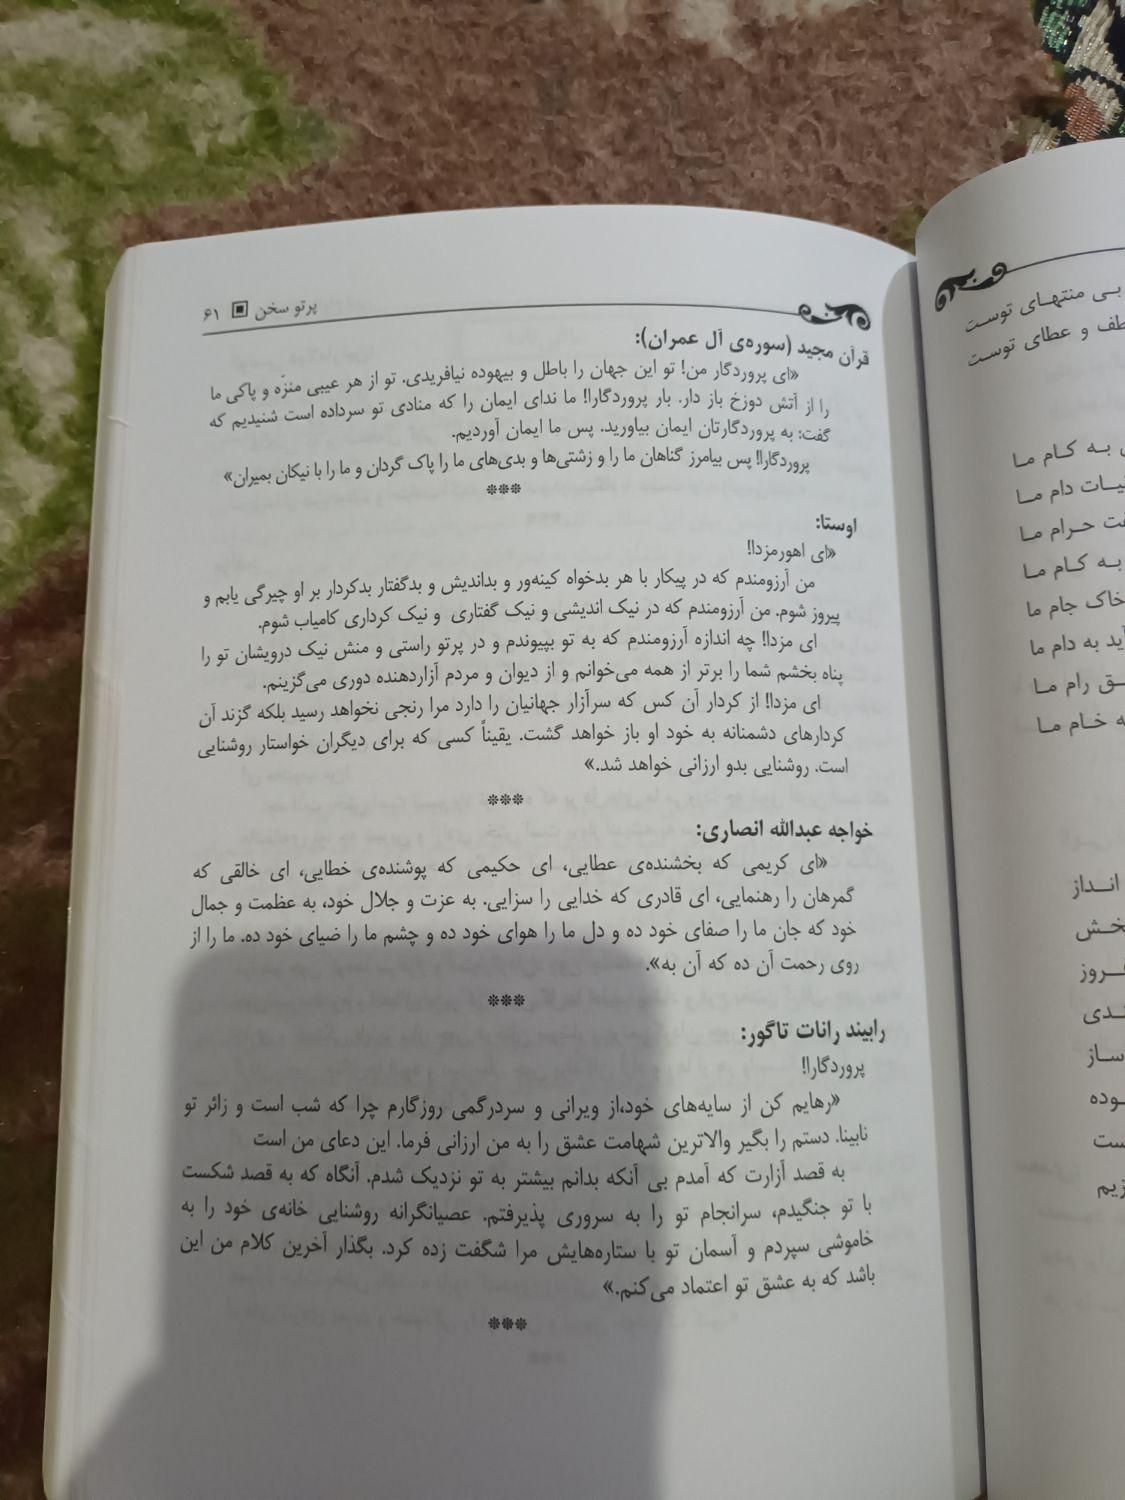 پرتو سخن ۶۱
قرآن مجید (سوره‌ی آل عمران):
«ای پروردگار من! تو این جهان را باطل و بیهوده نیافریدی. تو از هر عیبی منزّه و پاکی ما
را از آتش دوزخ باز دار. بار پروردگارا! ما ندای ایمان را که منادی تو سرداده است شنیدیم که
گفت: به پروردگارتان ایمان بیاورید. پس ما ایمان آوردیم.
پروردگارا! پس بیامرز گناهان ما را و زشتی‌ها و بدی‌های ما را پاک گردان و ما را با نیکان بمیران»
***
اوستا:
«ای اهورمزدا!
من آرزومندم که در پیکار با هر بدخواه کینه‌ور و بداندیش و بدگفتار بدکردار بر او چیرگی یابم و
پیروز شوم. من آرزومندم که در نیک اندیشی و نیک گفتاری و نیک کرداری کامیاب شوم.
ای مزدا! چه اندازه آرزومندم که به تو بپیوندم و در پرتو راستی و منش نیک درویشان تو را
پناه بخشم شما را برتر از همه می‌خوانم و از دیوان و مردم آزاردهنده دوری می‌گزینم.
ای مزدا! از کردار آن کس که سرآزار جهانیان را دارد مرا رنجی نخواهد رسید بلکه گزند آن
کردارهای دشمنانه به خود او باز خواهد گشت. یقیناً کسی که برای دیگران خواستار روشنایی
است. روشنایی بدو ارزانی خواهد شد.»
***
خواجه عبدالله انصاری:
«ای کریمی که بخشنده‌ی عطایی، ای حکیمی که پوشنده‌ی خطایی، ای خالقی که
گمرهان را رهنمایی، ای قادری که خدایی را سزایی. به عزت و جلال خود، به عظمت و جمال
خود که جان ما را صفای خود ده و دل ما را هوای خود ده و چشم ما را ضیای خود ده. ما را از
روی رحمت آن ده که آن به».
***
رابیند رانات تاگور:
پروردگارا!
«رهایم کن از سایه‌های خود،از ویرانی و سردرگمی روزگارم چرا که شب است و زائر تو
نابینا. دستم را بگیر والاترین شهامت عشق را به من ارزانی فرما. این دعای من است
به قصد آزارت که آمدم بی آنکه بدانم بیشتر به تو نزدیک شدم. آنگاه که به قصد شکست
با تو جنگیدم، سرانجام تو را به سروری پذیرفتم. عصیانگرانه روشنایی خانه‌ی خود را به
خاموشی سپردم و آسمان تو با ستاره‌هایش مرا شگفت زده کرد. بگذار آخرین کلام من این
باشد که به عشق تو اعتماد می‌کنم.»
***
بی منتهای توست
و عطای توست
به کام ما
دام ما
حرام ما
به کام ما
خاک جام ما
به دام ما
رام ما
خام ما
انداز